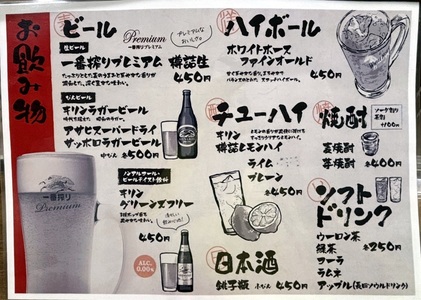 お飲み物
ビール
Premium
一番搾りプレミアム
プレミアムな
おいしさ
生ビール
一番搾りプレミアム 樽詰生
450円
びんビール
キリンラガービール
アサヒスーパードライ
サッポロラガービール
中びん 各500円
ノンアルコール・
ビールテイスト飲料
キリン
グリーンズフリー
450円
ALC.
0.00%
一番搾り
Premium
ハイボール
ホワイトホース
ファインオールド
各450円
チューハイ
キリン
樽詰レモンハイ
ライム
プレーン
各450円
日本酒
銚子瓶
450円
焼酎
ソーダ割り
茶割
+100円
麦焼酎
芋焼酎 各400円
ソフト
ドリンク
ウーロン茶
緑茶 各250円
コーラ
ラムネ
アップル(長田ソウルドリンク)